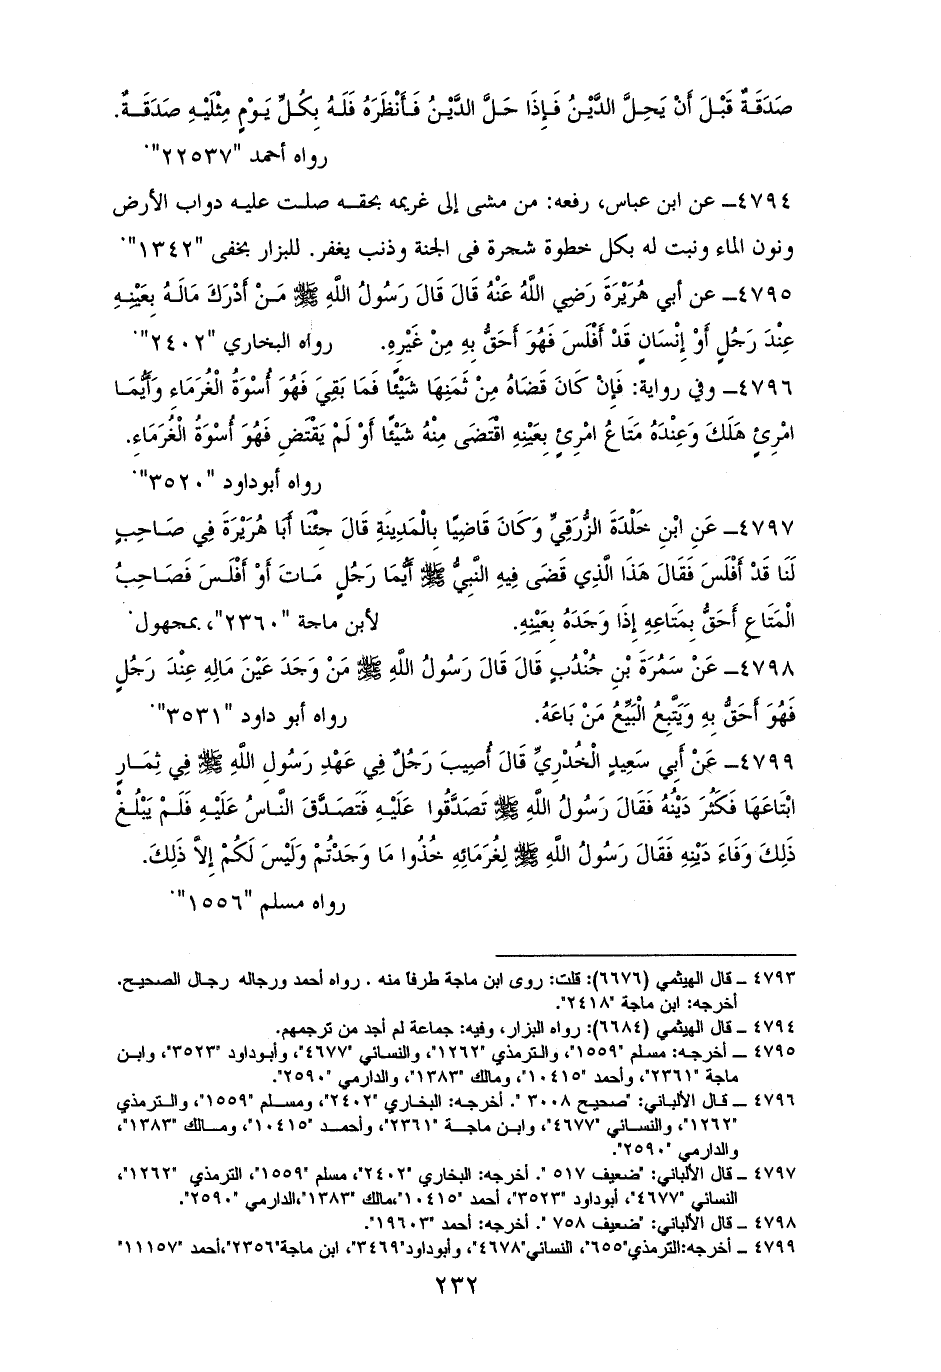 صَدَقَةٌ قَبْلَ أَنْ يَحِلَّ الدَّيْنُ فَإِذَا حَلَّ الدَّيْنُ فَأَنْظَرَهُ فَلَهُ بِكُلِّ يَوْمٍ مِثْلَيْهِ صَدَقَةٌ.
رواه أحمد "٢٢٥٣٧".
٤٧٩٤ـ عن ابن عباس، رفعه: من مشى إلى غريمه بحقه صلت عليه دواب الأرض
ونون الماء ونبت له بكل خطوة شجرة فى الجنة وذنب يغفر. للبزار بخفى "١٣٤٢".
٤٧٩٥ـ عن أبي هُرَيْرَةَ رَضِي اللَّهُ عَنْهُ قَالَ قَالَ رَسُولُ اللَّهِ ﷺ مَنْ أَدْرَكَ مَالَهُ بِعَيْنِهِ
عِنْدَ رَجُلٍ أَوْ إِنْسَانٍ قَدْ أَفْلَسَ فَهُوَ أَحَقُّ بِهِ مِنْ غَيْرِهِ. رواه البخاري "٢٤٠٢".
٤٧٩٦ـ وفي رواية: فَإِنْ كَانَ قَضَاهُ مِنْ ثَمَنِهَا شَيْئًا فَمَا بَقِيَ فَهُوَ أُسْوَةُ الْغُرَمَاءِ وَأَيُّمَا
امْرِئٍ هَلَكَ وَعِنْدَهُ مَتَاعُ امْرِئٍ بِعَيْنِهِ اقْتَضَى مِنْهُ شَيْئًا أَوْ لَمْ يَقْتَضِ فَهُوَ أُسْوَةُ الْغُرَمَاءِ.
رواه أبوداود "٣٥٢٠".
٤٧٩٧ـ عَنِ ابْنِ خَلْدَةَ الزُّرَقِيِّ وَكَانَ قَاضِيًا بِالْمَدِينَةِ قَالَ جِئْنَا أَبَا هُرَيْرَةَ فِي صَاحِبٍ
لَنَا قَدْ أَفْلَسَ فَقَالَ هَذَا الَّذِي قَضَى فِيهِ النَّبِيُّ ﷺ أَيُّمَا رَجُلٍ مَاتَ أَوْ أَفْلَسَ فَصَاحِبُ
الْمَتَاعِ أَحَقُّ بِمَتَاعِهِ إِذَا وَجَدَهُ بِعَيْنِهِ. لأبن ماجة "٢٣٦٠"، بمجهول.
٤٧٩٨ـ عَنْ سَمُرَةَ بْنِ جُنْدُبٍ قَالَ قَالَ رَسُولُ اللَّهِ ﷺ مَنْ وَجَدَ عَيْنَ مَالِهِ عِنْدَ رَجُلٍ
فَهُوَ أَحَقُّ بِهِ وَيَتَّبِعُ الْبَيِّعُ مَنْ بَاعَهُ. رواه أبو داود "٣٥٣١".
٤٧٩٩ـ عَنْ أَبِي سَعِيدٍ الْخُدْرِيِّ قَالَ أُصِيبَ رَجُلٌ فِي عَهْدِ رَسُولِ اللَّهِ ﷺ فِي ثِمَارٍ
ابْتَاعَهَا فَكَثُرَ دَيْنُهُ فَقَالَ رَسُولُ اللَّهِ ﷺ تَصَدَّقُوا عَلَيْهِ فَتَصَدَّقَ النَّاسُ عَلَيْهِ فَلَمْ يَبْلُغْ
ذَلِكَ وَفَاءَ دَيْنِهِ فَقَالَ رَسُولُ اللَّهِ ﷺ لِغُرَمَائِهِ خُذُوا مَا وَجَدْتُمْ وَلَيْسَ لَكُمْ إِلاَّ ذَلِكَ.
رواه مسلم "١٥٥٦".
٤٧٩٣ ـ قال الهيثمي (٦٦٧٦): قلت: روى ابن ماجة طرفا منه . رواه أحمد ورجاله رجال الصحيح.
أخرجه: ابن ماجة "٢٤١٨".
٤٧٩٤ ـ قال الهيثمي (٦٦٨٤): رواه البزار، وفيه: جماعة لم أجد من ترجمهم.
٤٧٩٥ ـ أخرجه: مسلم "١٥٥٩"، والترمذي "١٢٦٢"، والنسائي "٤٦٧٧"، وأبوداود "٣٥٢٣"، وابن
ماجة "٢٣٦١"، وأحمد "١٠٤١٥"، ومالك "١٣٨٣"، والدارمي "٢٥٩٠".
٤٧٩٦ ـ قال الألباني: "صحيح ٣٠٠٨ ". أخرجه: البخاري "٢٤٠٢"، ومسلم "١٥٥٩"، والترمذي
"١٢٦٢"، والنسائي "٤٦٧٧"، وابن ماجة "٢٣٦١"، وأحمد "١٠٤١٥"، ومالك "١٣٨٣"،
والدارمي "٢٥٩٠".
٤٧٩٧ ـ قال الألباني: "ضعيف ٥١٧ ". أخرجه: البخاري "٢٤٠٢"، مسلم "١٥٥٩"، الترمذي "١٢٦٢"،
النسائي "٤٦٧٧"، أبوداود "٣٥٢٣"، أحمد "١٠٤١٥"،مالك "١٣٨٣"،الدارمي "٢٥٩٠".
٤٧٩٨ ـ قال الألباني: "ضعيف ٧٥٨ ". أخرجه: أحمد "١٩٦٠٣".
٤٧٩٩ ـ أخرجه:الترمذي"٦٥٥"، النسائي"٤٦٧٨"، وأبوداود"٣٤٦٩"، ابن ماجة"٢٣٥٦"،أحمد "١١١٥٧"
٢٣٢